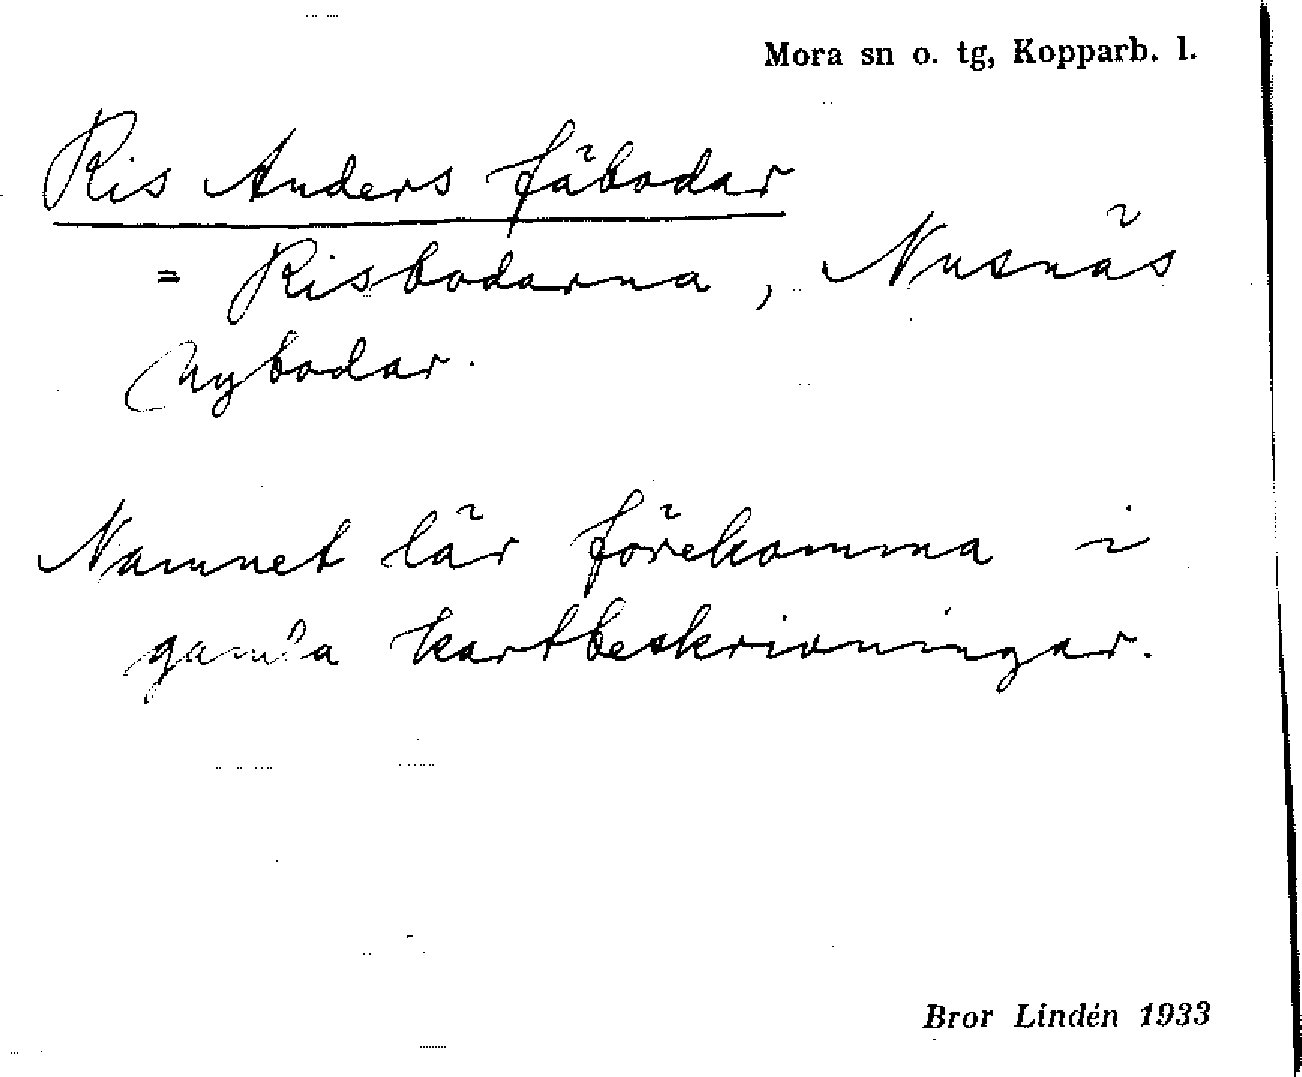 Mora sn o. tg, Kopparb. l.
Ris Anders fäbodar
= Risbodarna, Nusnäs
Nybodar.
Namnet lär förekomma i
gamla kartbeskrivningar.
Bror Lindén 1933